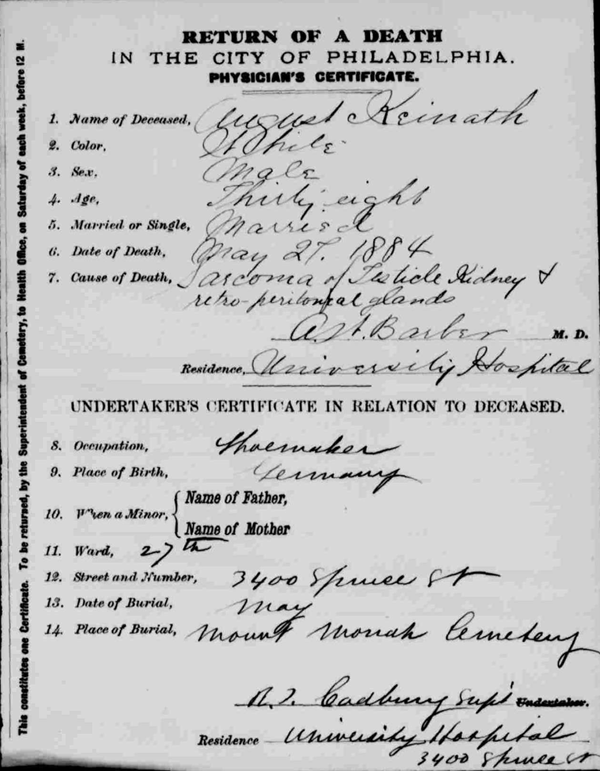 RETURN OF A DEATH
IN THE CITY OF PHILADELPHIA.
PHYSICIAN'S CERTIFICATE.
1. Name of Deceased, August Keinath
2. Color, White
3. Sex, Male
4. Age, Thirty eight
5. Married or Single, Married
6. Date of Death, May 27, 1884
7. Cause of Death, Sarcoma of Testicle Kidney &
retro-peritoneal glands
A. H. Barber M. D.
Residence, University Hospital
UNDERTAKER'S CERTIFICATE IN RELATION TO DECEASED.
8. Occupation, Shoemaker
9. Place of Birth, Germany
10. When a Minor, { Name of Father,
Name of Mother
11. Ward, 27th
12. Street and Number, 3400 Spruce St
13. Date of Burial, May
14. Place of Burial, Mount Moriah Cemetery
Cadbury Supt Undertaker.
Residence University Hospital
3400 Spruce
This constitutes one Certificate. To be returned, by the Superintendent of Cemetery, to Health Office, on Saturday of each week, before 12 M.